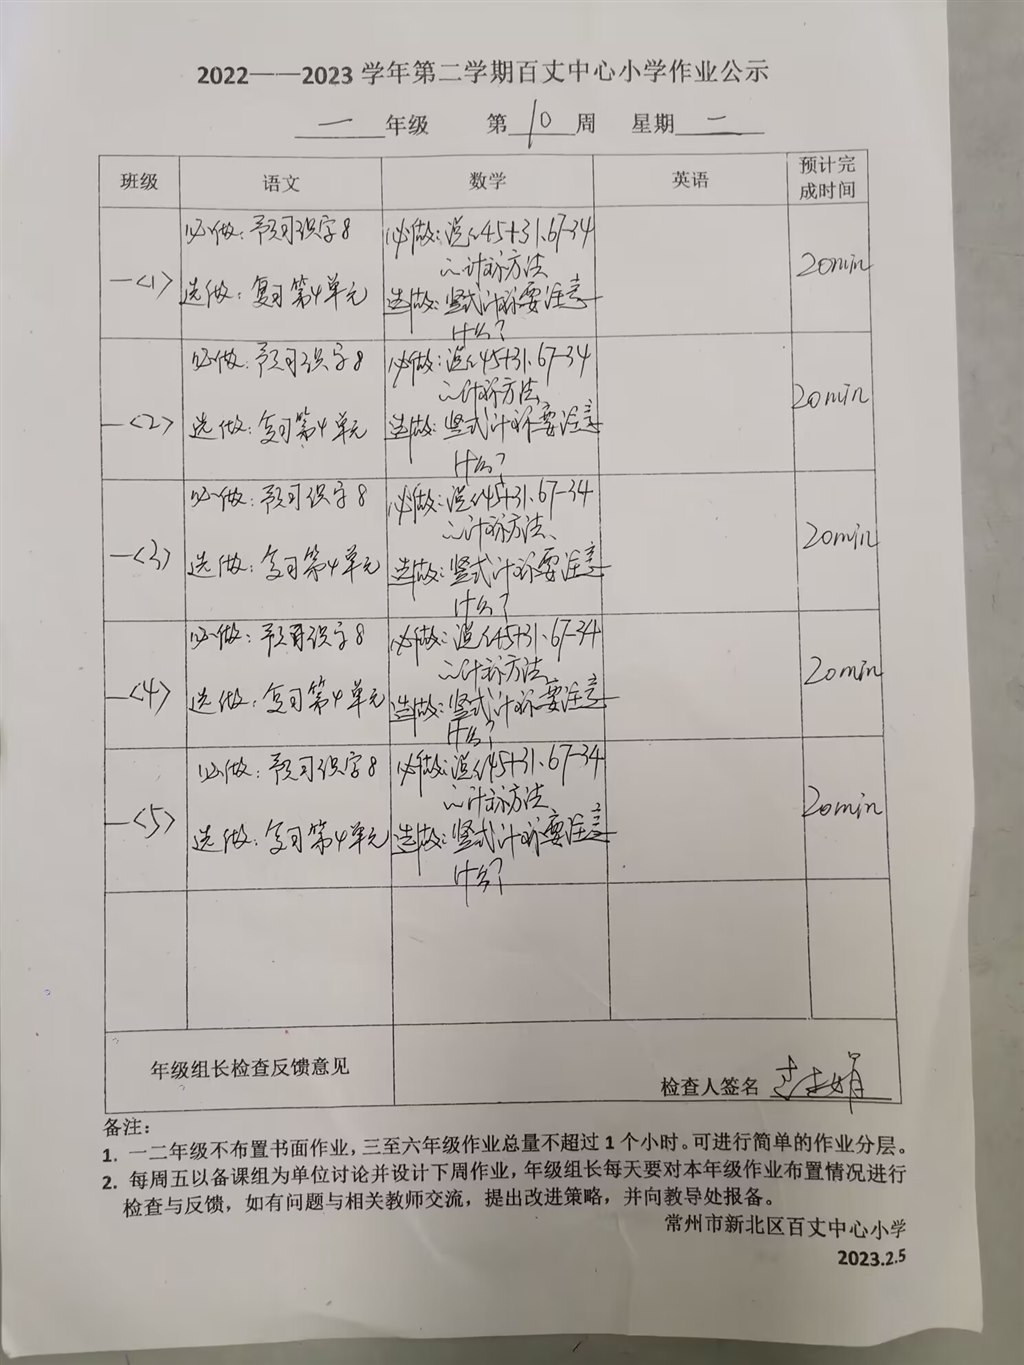 2022——2023 学年第二学期百丈中心小学作业公示
一 年级 第 10 周 星期 二
班级 语文 数学 英语 预计完
成时间
一<1> 必做：预习识字8 必做：说说45+31、67-34 20min
的计算方法
选做：复习第4单元 选做：竖式计算要注意
什么？
一<2> 必做：预习识字8 必做：说说45+31、67-34 20min
的计算方法
选做：复习第4单元 选做：竖式计算要注意
什么？
一<3> 必做：预习识字8 必做：说说45+31、67-34 20min
的计算方法、
选做：复习第4单元 选做：竖式计算要注意
什么？
一<4> 必做：预习识字8 必做：说说45+31、67-34 20min
的计算方法
选做：复习第4单元 选做：竖式计算要注意
什么？
一<5> 必做：预习识字8 必做：说说45+31、67-34 20min
的计算方法
选做：复习第4单元 选做：竖式计算要注意
什么？
年级组长检查反馈意见
检查人签名
备注：
1. 一二年级不布置书面作业，三至六年级作业总量不超过 1 个小时。可进行简单的作业分层。
2. 每周五以备课组为单位讨论并设计下周作业，年级组长每天要对本年级作业布置情况进行
检查与反馈，如有问题与相关教师交流，提出改进策略，并向教导处报备。
常州市新北区百丈中心小学
2023.2.5